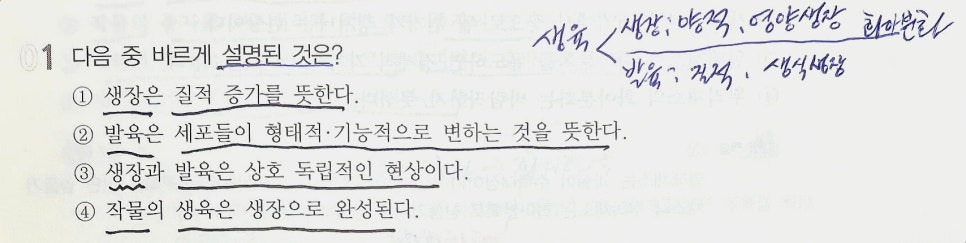 생육 < 생장 : 양적, 영양생장 화아분화
발육 : 질적, 생식생장
01 다음 중 바르게 설명된 것은?
① 생장은 질적 증가를 뜻한다.
② 발육은 세포들이 형태적·기능적으로 변하는 것을 뜻한다.
③ 생장과 발육은 상호 독립적인 현상이다.
④ 작물의 생육은 생장으로 완성된다.